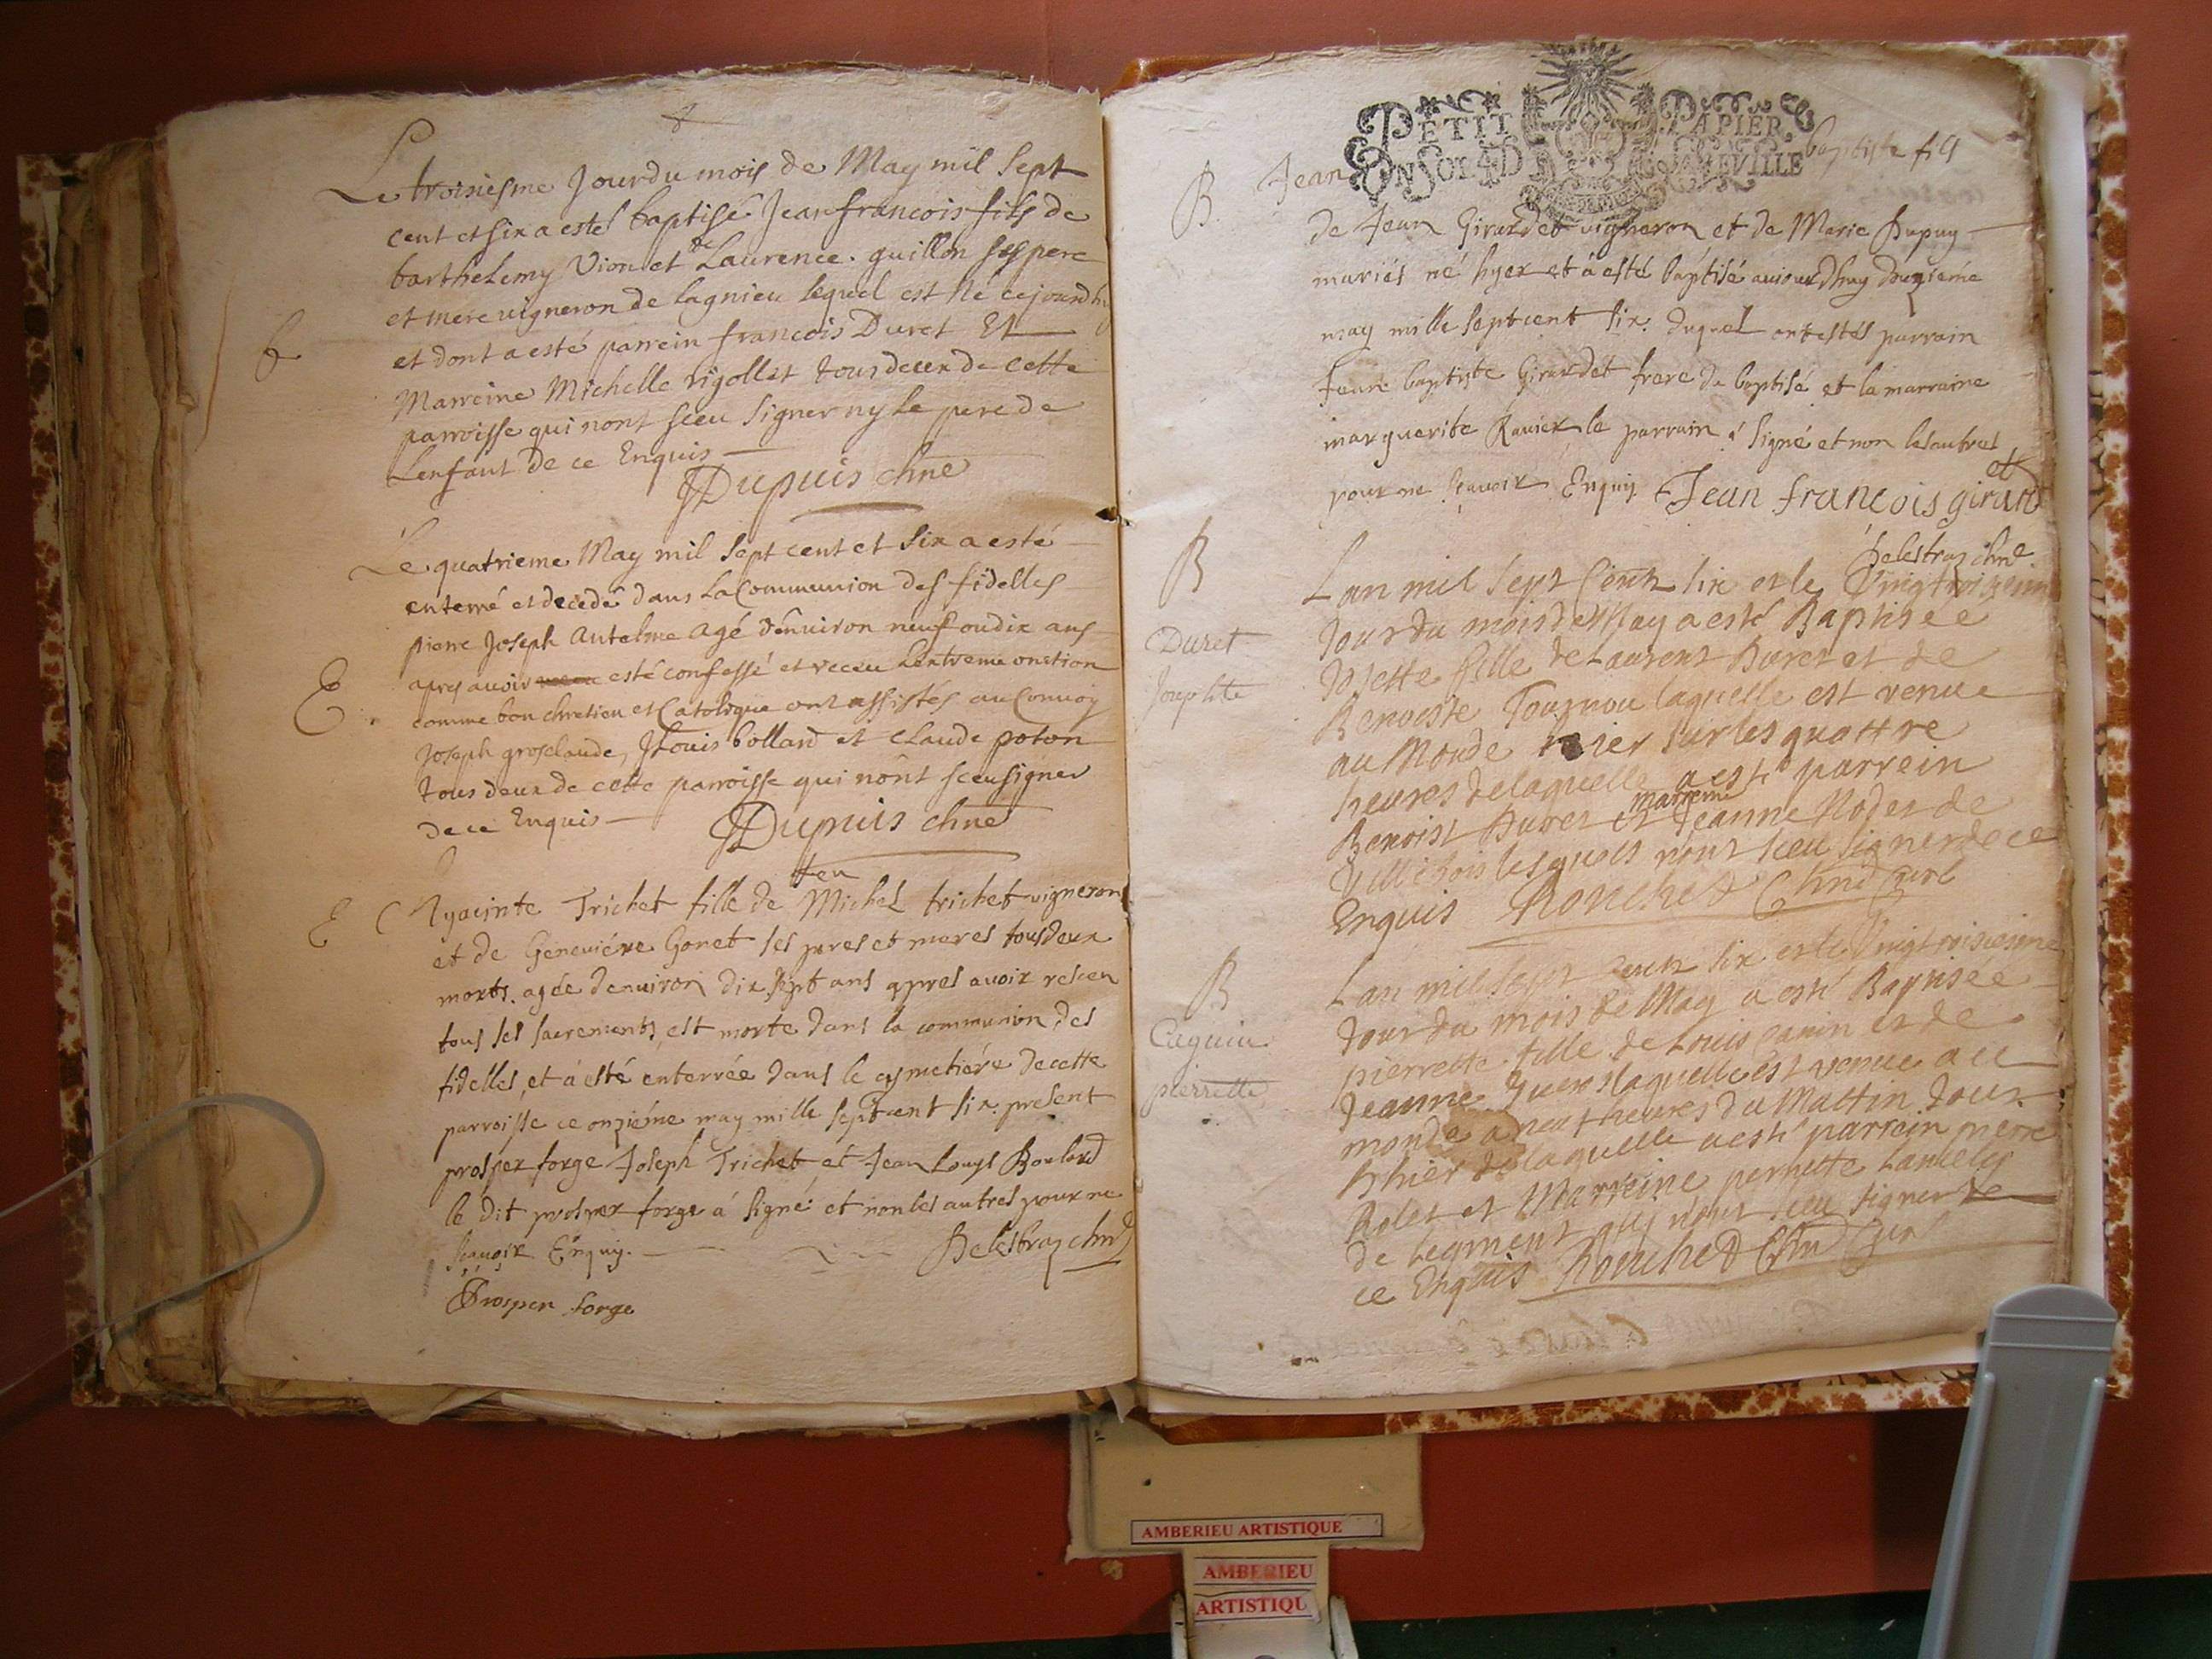 Le troisiesme Jour du mois de May mil Sept
cent et six a esté baptisé Jean francois fils de
barthelemy Vion et de Laurence guillon ses pere
et mere vigneron de lagnieu lequel est né cejourdhuy
b
et dont a esté parrein francois Duret Et
Marreine Michelle rigollet tous deux de cette
parroisse qui nont sceu signer ny le pere de
Lenfant de ce Enquis
Dupuis chne
Le quatrieme May mil sept cent et six a esté
enterré et decedé dans la Communion des fidelles
pierre Joseph Antelme agé denuiron neuf ou dix ans
apres auoir esté confessé et receu Lextreme onction
E
comme bon chretien et Catolique ont assistés au Conuoy
Joseph grosclaude, JLouis bollard et Claude poton
tous deux de cette parroisse qui nont sceu signer
de ce Enquis
Dupuis chne
feu
E
Hyacinte Trichet fille de Michel trichet vigneron
et de Geneviéve Gonet ses peres et meres tous deux
morts agée denuiron dix sept ans apres auoir receu
tous ses sacrements est morte dans la communion des
fidelles, et à esté enterrée dans le cymetiére de cette
parroisse ce onziéme may mille sept cent six present
prosper forge Joseph Trichet et Jean Louys Boulard
le dit prosper forge à signé et non les autres pour ne
sçauoir Enquis
Delestraz chne
Prosper forge
PETIT PAPIER
UN SOL 4 D LA FEVILLE
B
Jean baptiste fils
de Jean Girardet vigneron et de Marie Dupuy
mariés né hyer et à esté baptisé aujourdhuy douziéme
may mille sept cent six. duquel ont estés parrain
Jean baptiste Girardet frere du baptisé et la marraine
marguerite Ravier le parrain à signé et non les autres
pour ne sçauoir Enquis Jean francois girardet
Delestraz chne
B
Lan mil sept Cent six et le Vingtroizeme
Jour du mois de May a esté Baptisée
Duret
Josette fille de Laurent Duret et de
Josephte
Benoiste Tournou laquelle est venue
au Monde hier sur les quattre
heures de laquelle a esté parrein
Benoist Duret et marreine Jeanne Rodet de
Villebois lesquels nont sceu signer de ce
Enquis Ronchet Chne Curé
B
Lan mil sept Cent six et le Vingtroisiesme
Jour du mois de May a esté Baptisée
Caguin
pierrette fille de Louis canin et de
Jeanne laquelle est venue au
pierrette
monde a neuf heures du Mattin Jour
Dhier de laquelle a esté parrein pierre
Rolet et Marreine pernette
de Legment qui nont sceu signer de
ce Enquis Ronchet Chne Curé
AMBERIEU ARTISTIQUE
AMBERIEU
ARTISTIQU